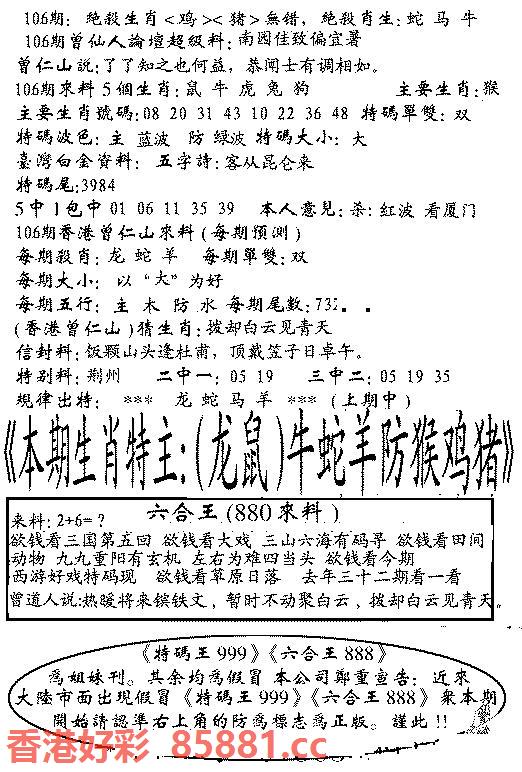 106期: 絶殺生肖<鸡><猪>無錯, 絶殺肖生: 蛇 马 牛
106期曾仙人論壇超級料: 南园佳致偏宜暑
曾仁山説: 了了知之也何益, 恭闻士有调相如。
106期來料5個生肖: 鼠 牛 虎 兔 狗 主要生肖: 猴
主要生肖號碼: 08 20 31 43 10 22 36 48 特碼單雙: 双
特碼波色: 主 蓝波 防 绿波 特碼大小: 大
臺灣白金資料: 五字詩: 客从昆仑来
特碼尾: 3984
5中1包中 01 06 11 35 39 本人意見: 杀: 紅波 看厦门
106期香港曾仁山來料(每期預測)
每期殺肖: 龙 蛇 羊 每期單雙: 双
每期大小: 以“大”为好
每期五行: 主 木 防 水 每期尾數: 732
(香港曾仁山)猜生肖: 拨却白云见青天
信封料: 饭颗山头逢杜甫, 顶戴笠子日卓午。
特别料: 荆州 二中一: 05 19 三中二: 05 19 35
規律出特: *** 龙 蛇 马 羊 *** (上期中)
《本期生肖特主:(龙鼠)牛蛇羊防猴鸡猪》
六合王(880來料)
来料: 2+6=?
欲钱看三国第五回 欲钱看大戏 三山六海有码寻 欲钱看田间
动物 九九重阳有玄机 左右为难四当头 欲钱看今期
西游好戏特码现 欲钱看草原日落 去年三十二期看一看
曾道人说: 热暖将来镔铁文, 暂时不动聚白云, 拨却白云见青天。
《特碼王999》《六合王888》
爲姐妹刊。其余均爲假冒 本公司鄭重宣告: 近來
大陸市面出現假冒《特碼王999》《六合王888》衆本期
開始請認準右上角的防爲標志爲正版。謹此!!
香港好彩 85881.cc